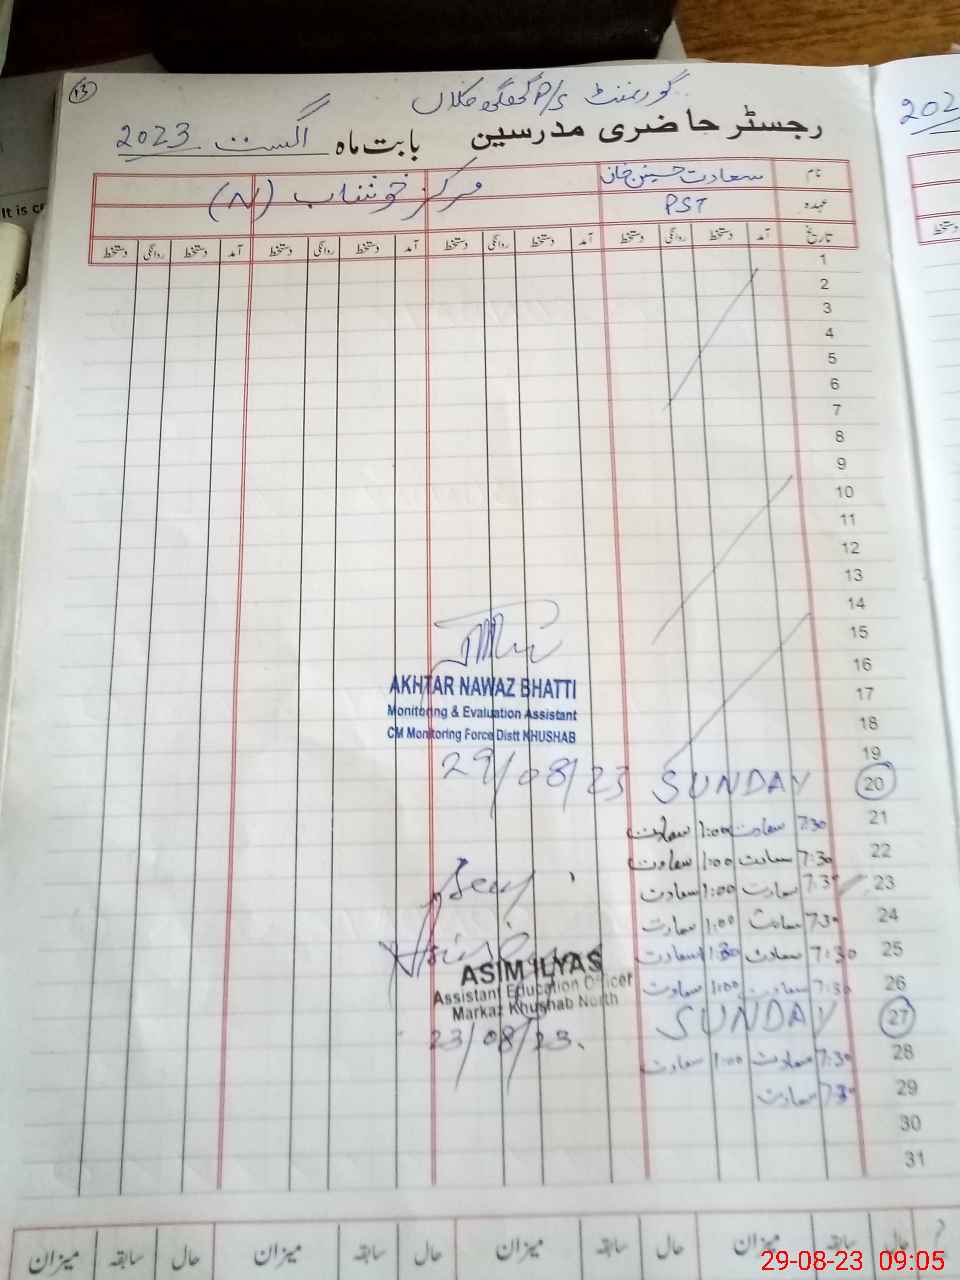 13
گورنمنٹ P/S
رجسٹر حاضری مدرسین
بابت ماہ اگست 2023
نام سعادت حسین خان
عہدہ PST
مرکز خوشاب (N)
تاریخ آمد دستخط روانگی دستخط آمد دستخط روانگی دستخط آمد دستخط روانگی دستخط آمد دستخط روانگی دستخط
1
2
3
4
5
6
7
8
9
10
11
12
13
14
15
16
17
18
19
20 SUNDAY
21 7:30 سعادت 1:00 سعادت
22 7:30 سعادت 1:00 سعادت
23 7:30 سعادت 1:00 سعادت
24 7:30 سعادت 1:00 سعادت
25 7:30 سعادت 1:30 سعادت
26 7:30 سعادت 1:00 سعادت
27 SUNDAY
28 7:30 سعادت 1:00 سعادت
29 7:30 سعادت
30
31
AKHTAR NAWAZ BHATTI
Monitoring & Evaluation Assistant
CM Monitoring Force Distt KHUSHAB
29/08/23
ASIM ILYAS
Assistant Education Officer
Markaz Khushab North
23/08/23.
حال سابقہ میزان حال سابقہ میزان حال سابقہ میزان حال سابقہ میزان
It is
202
دستخط
29-08-23 09:05